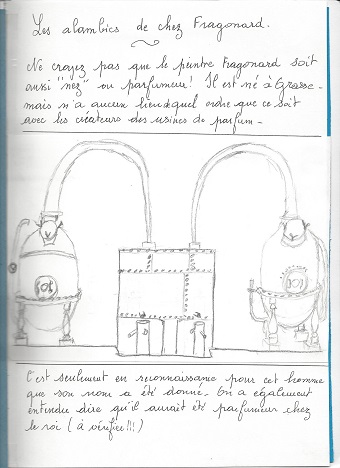 Les alambics de chez Fragonard.
Ne croyez pas que le peintre Fragonard soit
aussi "nez" ou parfumeur! Il est né à Grasse
mais n'a aucun lien de quel ordre que ce soit
avec les créateurs des usines de parfum.
C'est seulement en reconnaissance pour cet homme
que son nom a été donné. On a également
entendu dire qu'il aurait été parfumeur chez
le roi (à vérifier!!!)